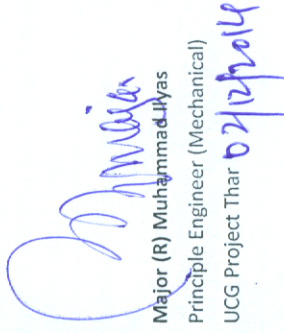 Major (R) Muhammad Ilyas
Principle Engineer (Mechanical)
UCG Project Thar 02/12/2014